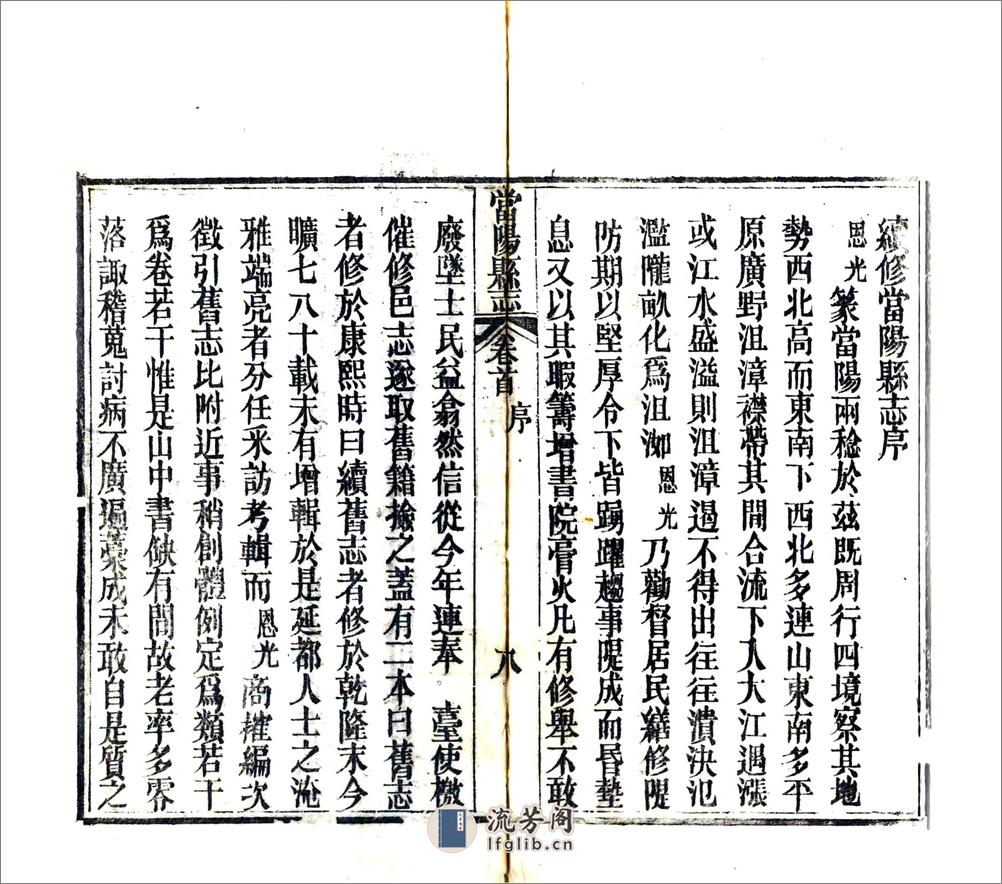 續修當陽縣志序
恩光篆當陽兩稔於茲既周行四境察其地
勢西北高而東南下西北多連山東南多平
原廣野沮漳襟帶其間合流下入大江遇漲
或江水盛溢則沮漳遏不得出往往潰決氾
濫隴畝化為沮洳恩光乃勸督居民繕修隄
防期以堅厚令下皆踴躍趨事隄成而昏墊
息又以其暇籌增書院膏火凡有修舉不敢
當陽縣志 卷首 序 八
廢墜士民益翕然信從今年連奉 臺使檄
催修邑志遂取舊籍撿之蓋有二本曰舊志
者修於康熙時曰續舊志者修於乾隆末今
曠七八十載未有增輯於是延都人士之淹
雅端亮者分任采訪考輯而恩光商搉編次
徵引舊志比附近事稍創體例定為類若干
為卷若干惟是山中書缺有間故老率多零
落諏稽蒐討病不廣遍藁成未敢自是質之
流芳阁
lfglib.cn